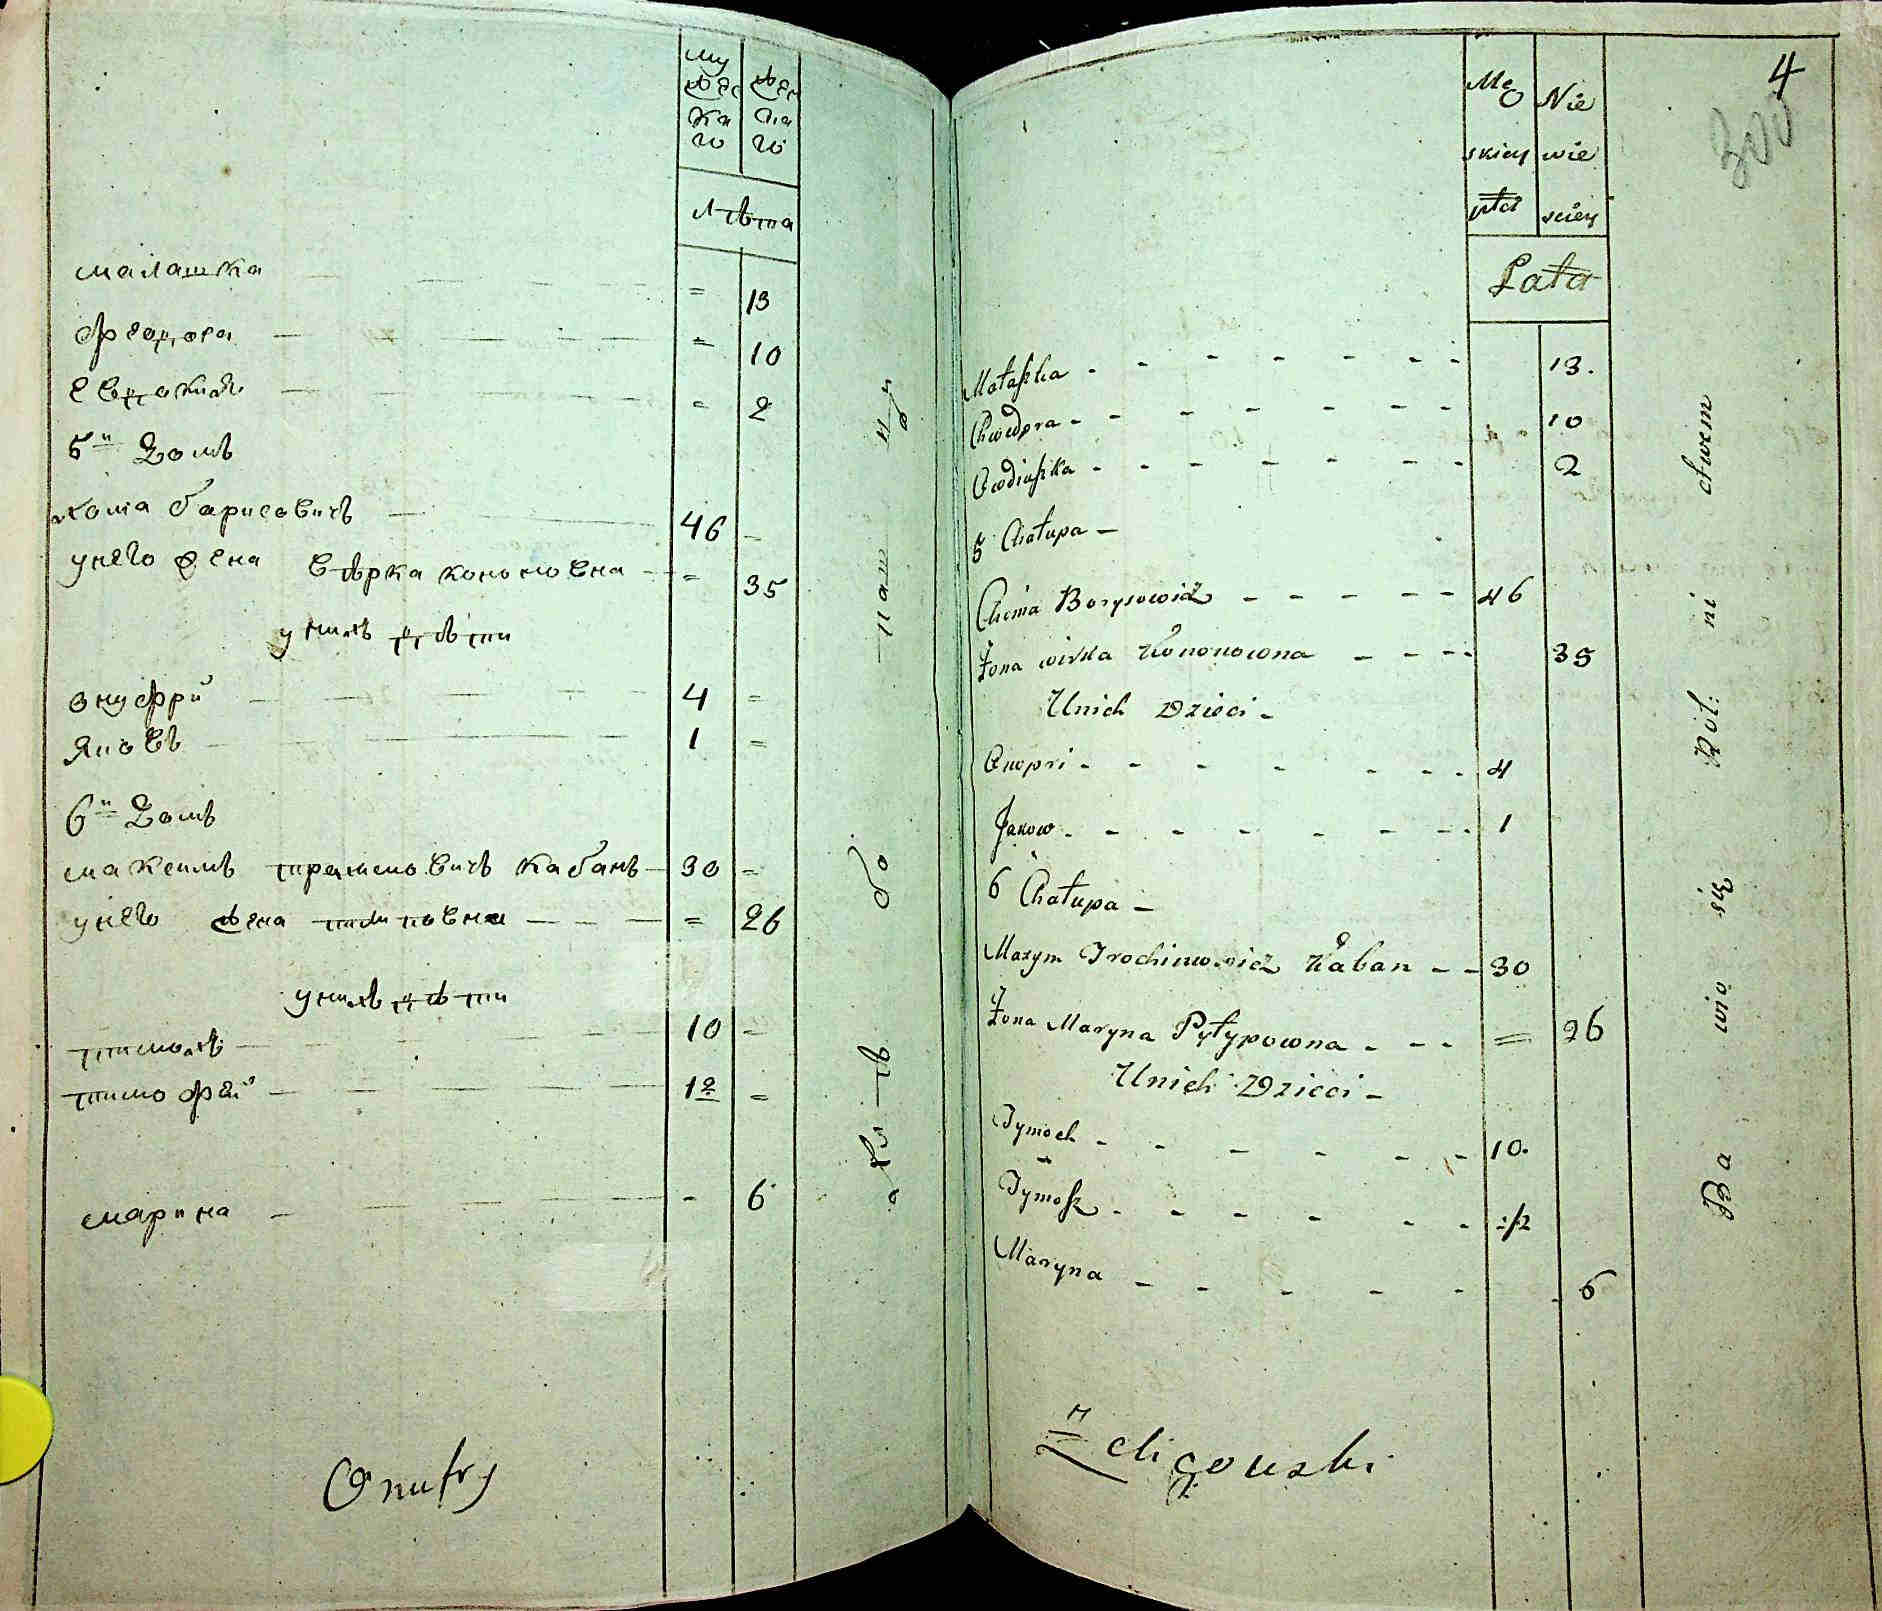 му жес ка го
жен ска го
лѣта
малашка = 13
федора = 10
евдокия = 2
5й домъ
хома барисовичъ 46 -
унего жена вѣрка кононовна = 35
унихъ дѣти
онуфрий 4 =
яковъ 1 =
6й домъ
максимъ трахимовичъ кабанъ 30 =
унего жена пилиповна = 26
унихъ дѣти
тимохъ 10 =
тимофей 12 =
марина - 6
Onufry
4
300
Mę skiey płci
Nie wie sciey
Lata
Małaszka 13.
Chwedora 10
Owdiuszka 2
5 Chałupa
Choma Borysowicz 46
Żona wirka Kononowna 35
Unich Dzieci
Onopri 4
Jakow 1
6 Chałupa
Maxym Trochimowicz Kaban 30
Żona Maryna Pyłypowna = 26
Unich Dzieci
Tymoch 10.
Tymosz 1/2
Maryna 6
Zeligowski
Ba wio się